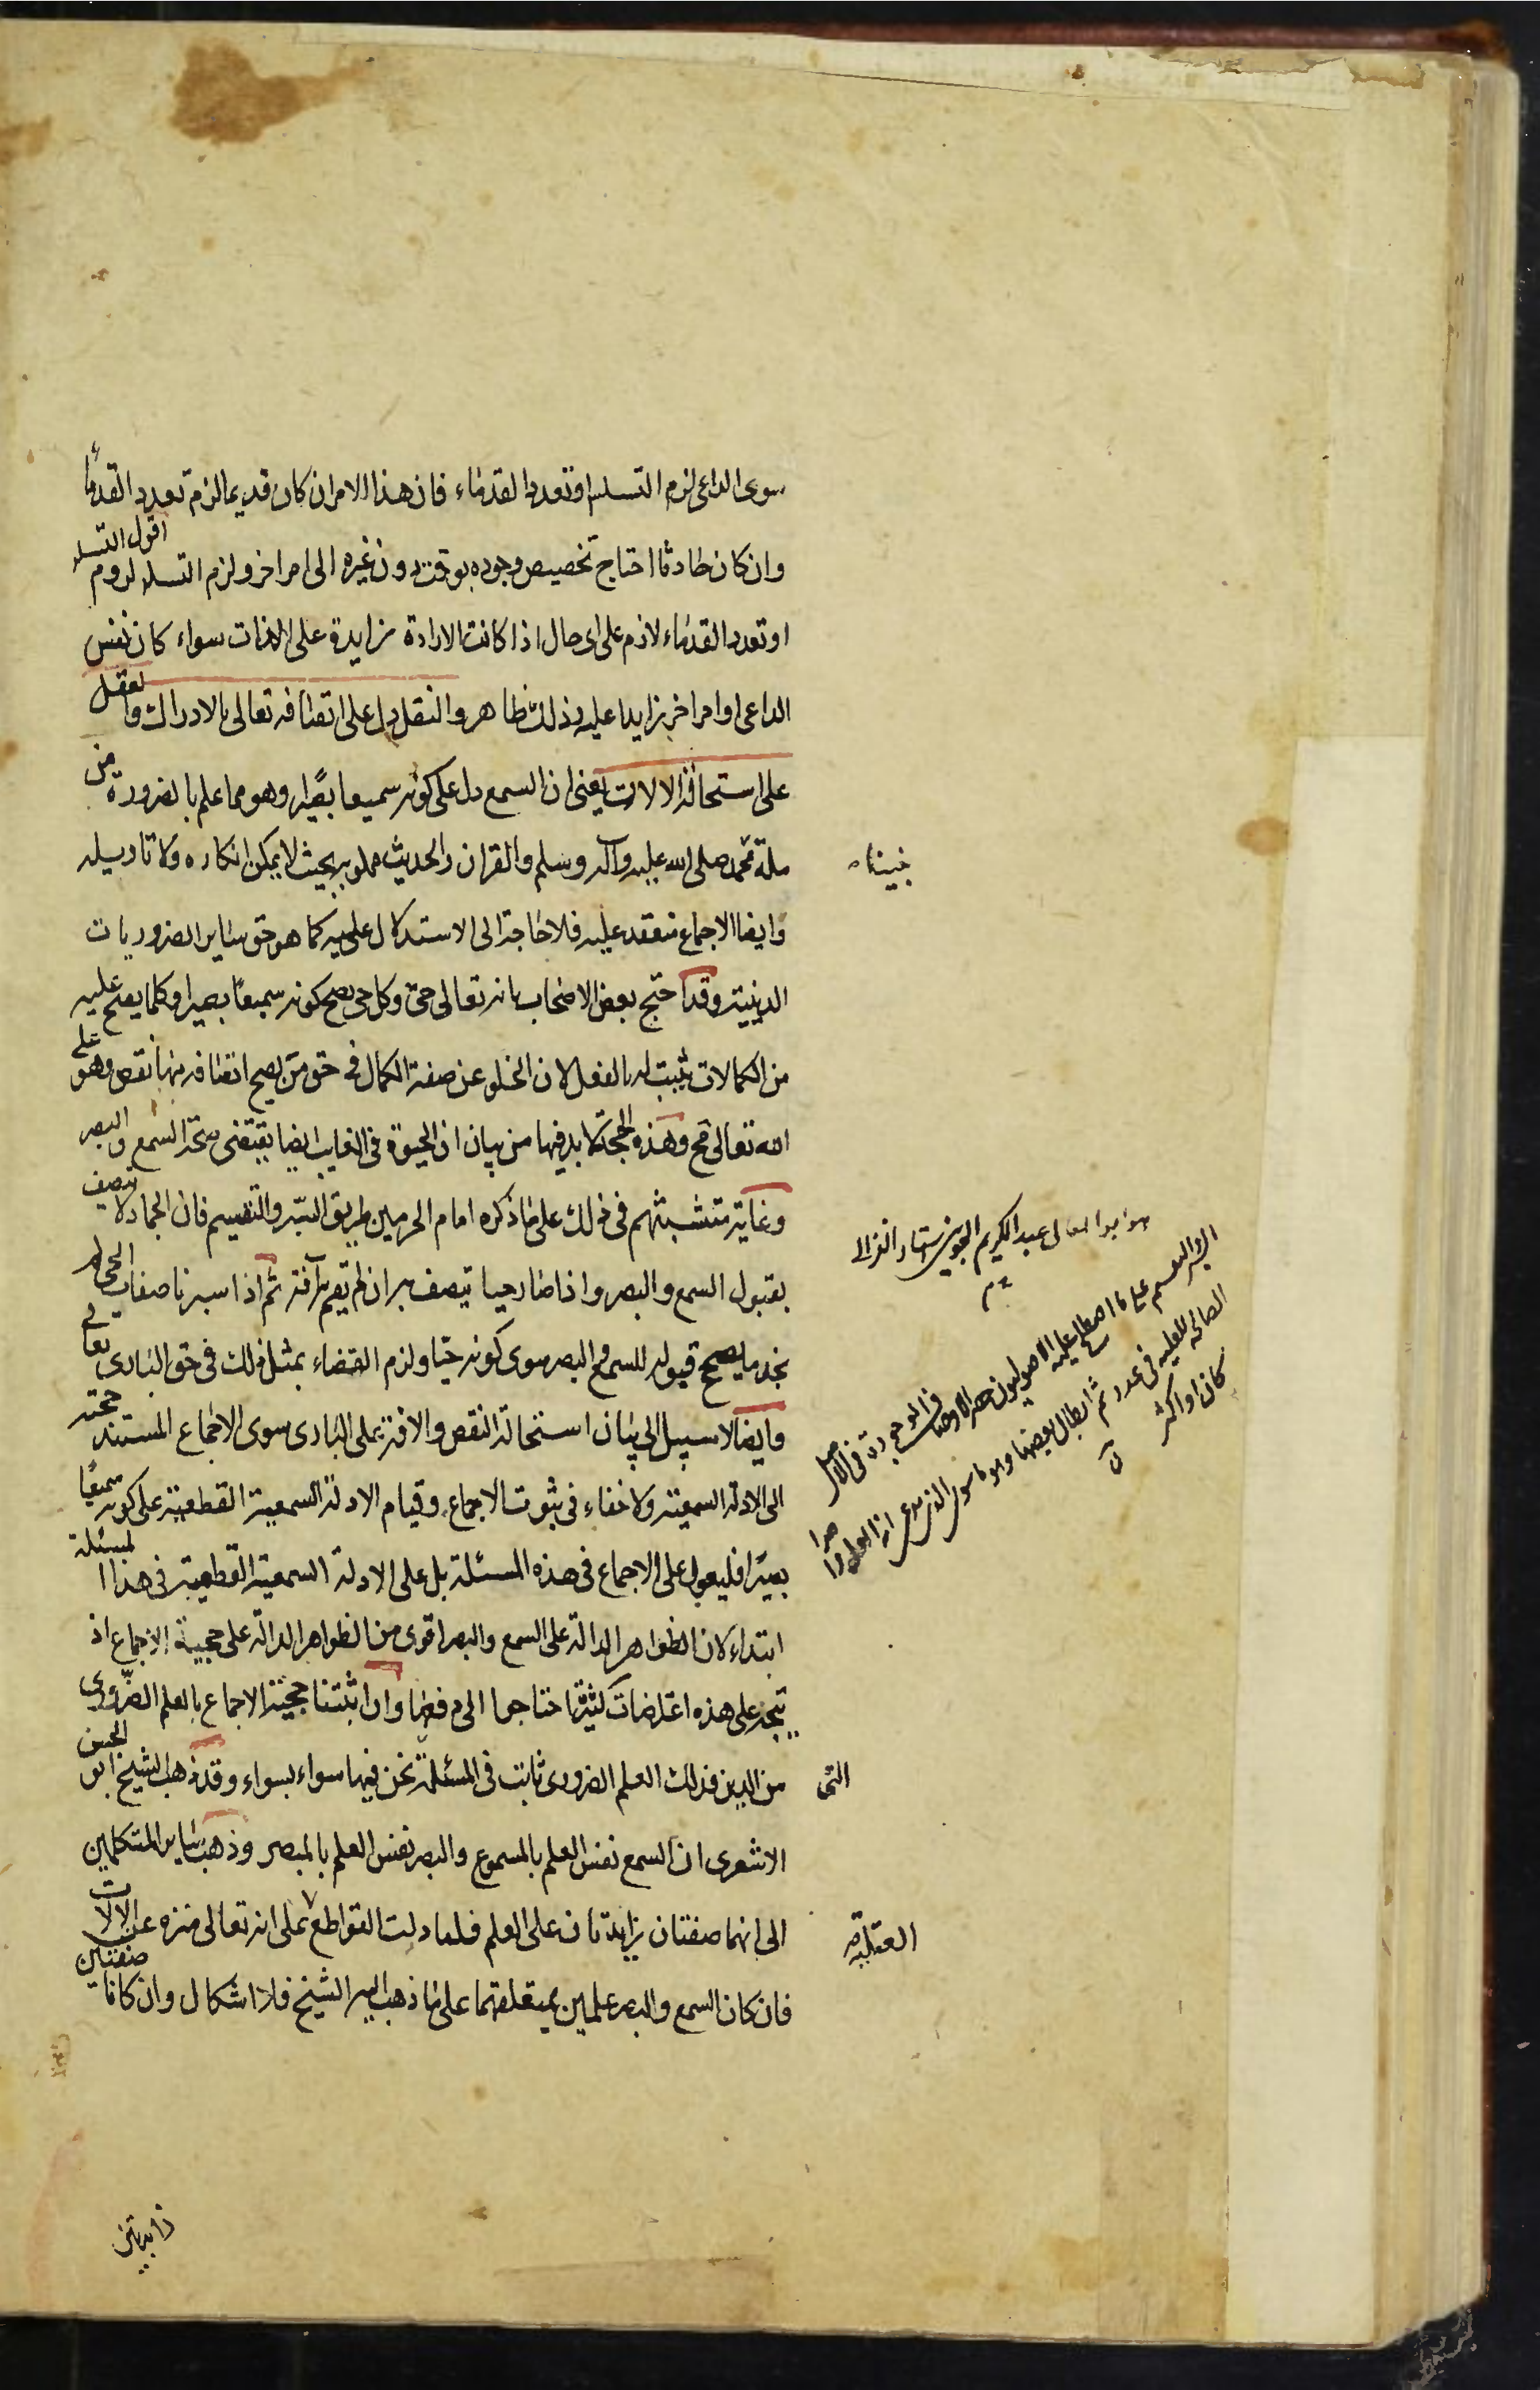 سوى الداعى لزم التسلسل او تعدد القدماء فان هذا الامر ان كان قديما لزم تعدد القدماء
وان كان حادثا احتاج تخصيص وجوده بوقت دون غيره الى امر اخر ولزم التسلسل اقول التسلسل لزوم
او تعدد القدماء لازم على اى حال اذا كانت الارادة زايدة على الذات سواء كان نفس
الداعى او امر اخر زايدا عليه وذلك ظاهر والنقل دل على اتصافه تعالى بالادراك والعقل
على استحالة الالات يعنى ان السمع دل على كونه سميعا بصيرا وهو مما علم بالضرورة من
ملة محمد صلى الله عليه وآله وسلم والقران والحديث مملو به بحيث لا يمكن انكاره ولا تاويله
وايضا الاجماع منعقد عليه فلا حاجة الى الاستدلال عليه كما هو حق ساير الضروريات
الدينية وقد احتج بعض الاصحاب بانه تعالى حى وكل حى يصح كونه سميعا بصيرا وكلما يصح عليه
من الكمالات يثبت له بالفعل لان الخلو عن صفة الكمال فى حق من يصح اتصافه بها نقص وهو على
الله تعالى مح وهذه الحجة لا بد فيها من بيان ان الحيوة فى الغايب ايضا يقتضى صحة السمع والبصر
وغاية متشبثهم فى ذلك على ما ذكره امام الحرمين طريق السبر والتقسيم فان الجماد لا يتصف
بقبول السمع والبصر واذا صار حيا يتصف به ان لم تقم به آفة ثم اذا سبرنا صفات الحى لم
نجد ما يصحح قبوله للسمع والبصر سوى كونه حيا ولزم القضاء بمثل ذلك فى حق البارى تعالى
وايضا لا سبيل الى بيان استحالة النقص والافة على البارى سوى الاجماع المستند حجيته
الى الادلة السمعية ولا خفاء فى ثبوت الاجماع وقيام الادلة السمعية القطعية على كونه سميعا
بصيرا فليعول على الاجماع فى هذه المسئلة بل على الادلة السمعية القطعية فى هذا المسئلة
ابتداء لان الظواهر الدالة على السمع والبصر اقوى من الظواهر الدالة على حجية الاجماع اذ
يتجه على هذه اعتراضات كثيرة احتاجوا الى دفعها وان اثبتنا حجية الاجماع بالعلم الضرورى
من الدين فذلك العلم الضرورى ثابت فى المسئلة نحن فيها سواء بسواء وقد ذهب الشيخ ابو الحسن
الاشعرى ان السمع نفس العلم بالمسموع والبصر نفس العلم بالمبصر وذهب ساير المتكلمين
الى انهما صفتان زايدتان على العلم فلما دلت القواطع على انه تعالى منزه عن الالات
فان كان السمع والبصر علمين بمتعلقهما على ما ذهب اليه الشيخ فلا اشكال وان كانا صفتين
زايدتين
نبيناء
هو ابو المعالى عبد الكريم الجوينى استاد الغزالى
السبر والتقسيم على ما اصطلح عليه الاصوليون حصر الاوصاف الموجودة فى الاصل
الصالحة للعلية فى عدد ثم ابطال بعضها وهو ما سوى الذى يدعى انه العلة واحدا
كان او اكثر
التى
العقلية